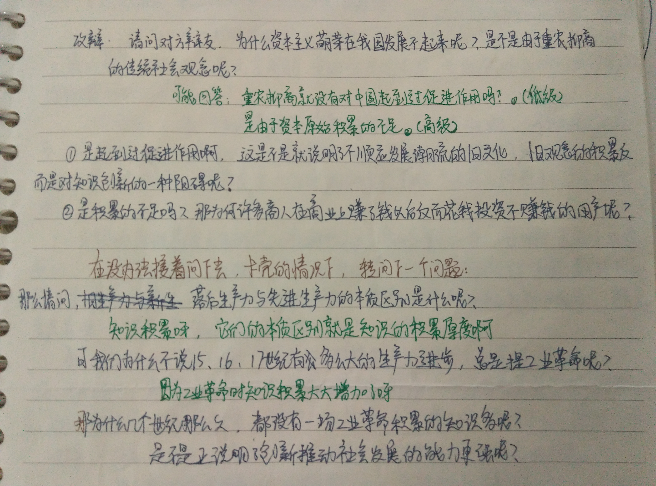 攻辩：请问对方辩友，为什么资本主义萌芽在我国发展不起来呢？是不是由于重农抑商
的传统社会观念呢？
可能回答：重农抑商就没有对中国起到过促进作用吗？。（低级）
是由于资本原始积累的不足。（高级）
①是起到过促进作用啊，这是不是就说明了不顺应发展潮流的旧文化，旧观念的积累反
而是对知识创新的一种阻碍呢？
②是积累的不足吗？那为何许多商人在商业上赚了钱以后反而花钱投资不赚钱的田产呢？
在没办法接着问下去，卡壳的情况下，转问下一个问题：
那么请问，落后生产力与先进生产力的本质区别是什么呢？
知识积累呀，它们的本质区别就是知识的积累厚度啊
可我们为什么不说15、16、17世纪有多么大的生产力进步，总是提工业革命呢？
因为工业革命时知识积累大大增加了呀
那为什么几个世纪那么久，都没有一场工业革命积累的知识多呢？
是不是正说明了创新推动社会发展的能力更强呢？